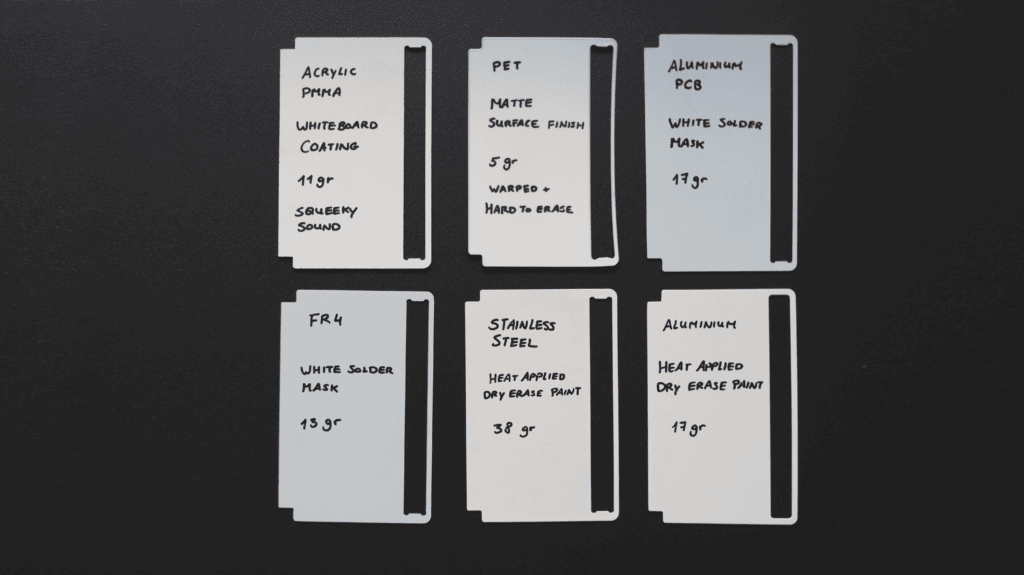 ACRYLIC
PMMA
WHITEBOARD
COATING
11 gr
SQUEEKY
SOUND
PET
MATTE
SURFACE FINISH
5 gr
WARPED +
HARD TO ERASE
ALUMINIUM
PCB
WHITE SOLDER
MASK
17 gr
FR4
WHITE SOLDER
MASK
13 gr
STAINLESS
STEEL
HEAT APPLIED
DRY ERASE PAINT
38 gr
ALUMINIUM
HEAT APPLIED
DRY ERASE PAINT
17 gr